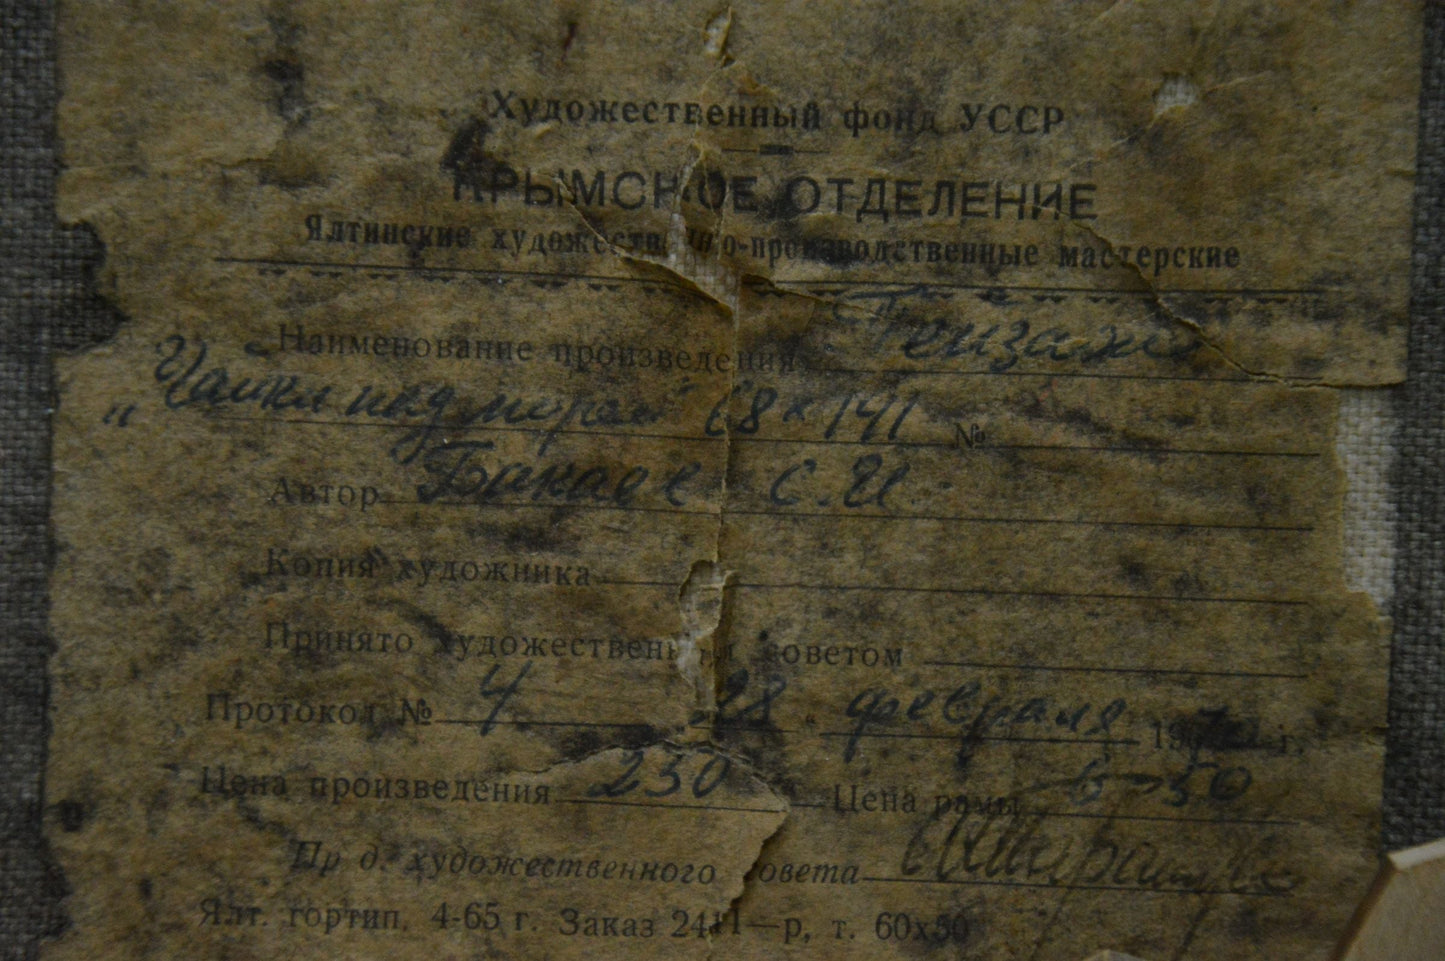 Художественный фонд УССР
КРЫМСКОЕ ОТДЕЛЕНИЕ
Ялтинские художественно-производственные мастерские
Наименование произведения Пейзаж
„Чайки над морем" 68 x 141 №
Автор Бакаев С.И.
Копия художника
Принято художественным советом
Протокол № 4 „28" февраля 197 г.
Цена произведения 250 Цена рамы 6-50
Пр д. художественного совета
Ялт. гортип. 4-65 г. Заказ 2411—р, т. 60х50